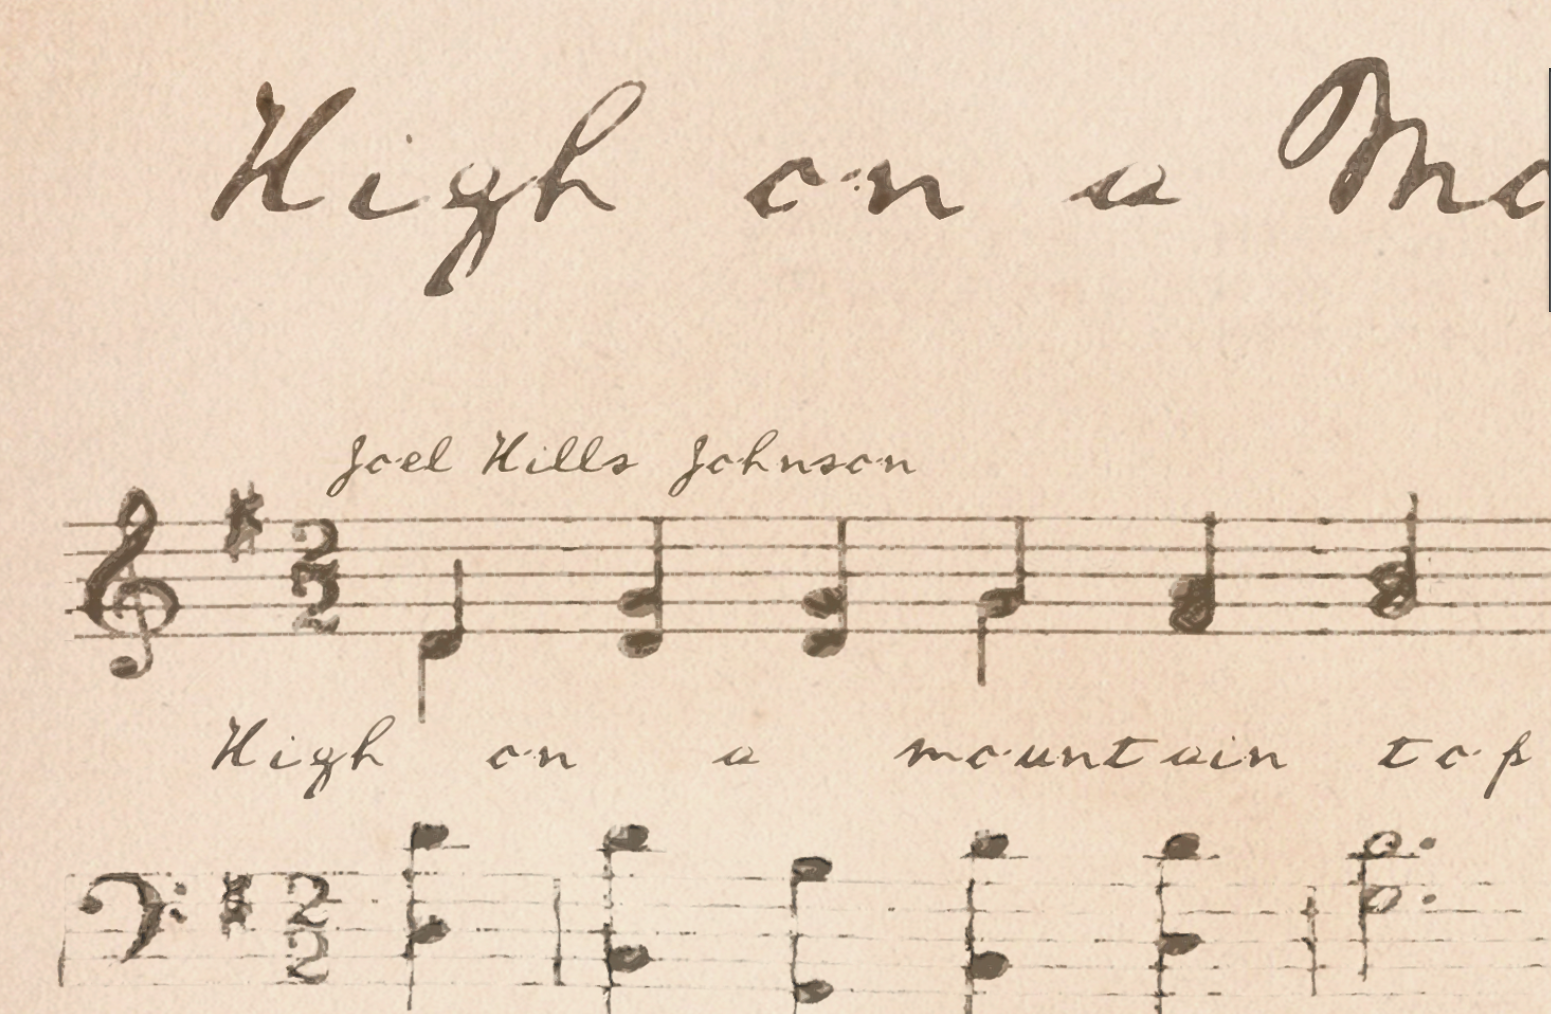 High on a Mo
Joel Hills Johnson
2
2
High on a mountain top
2
2